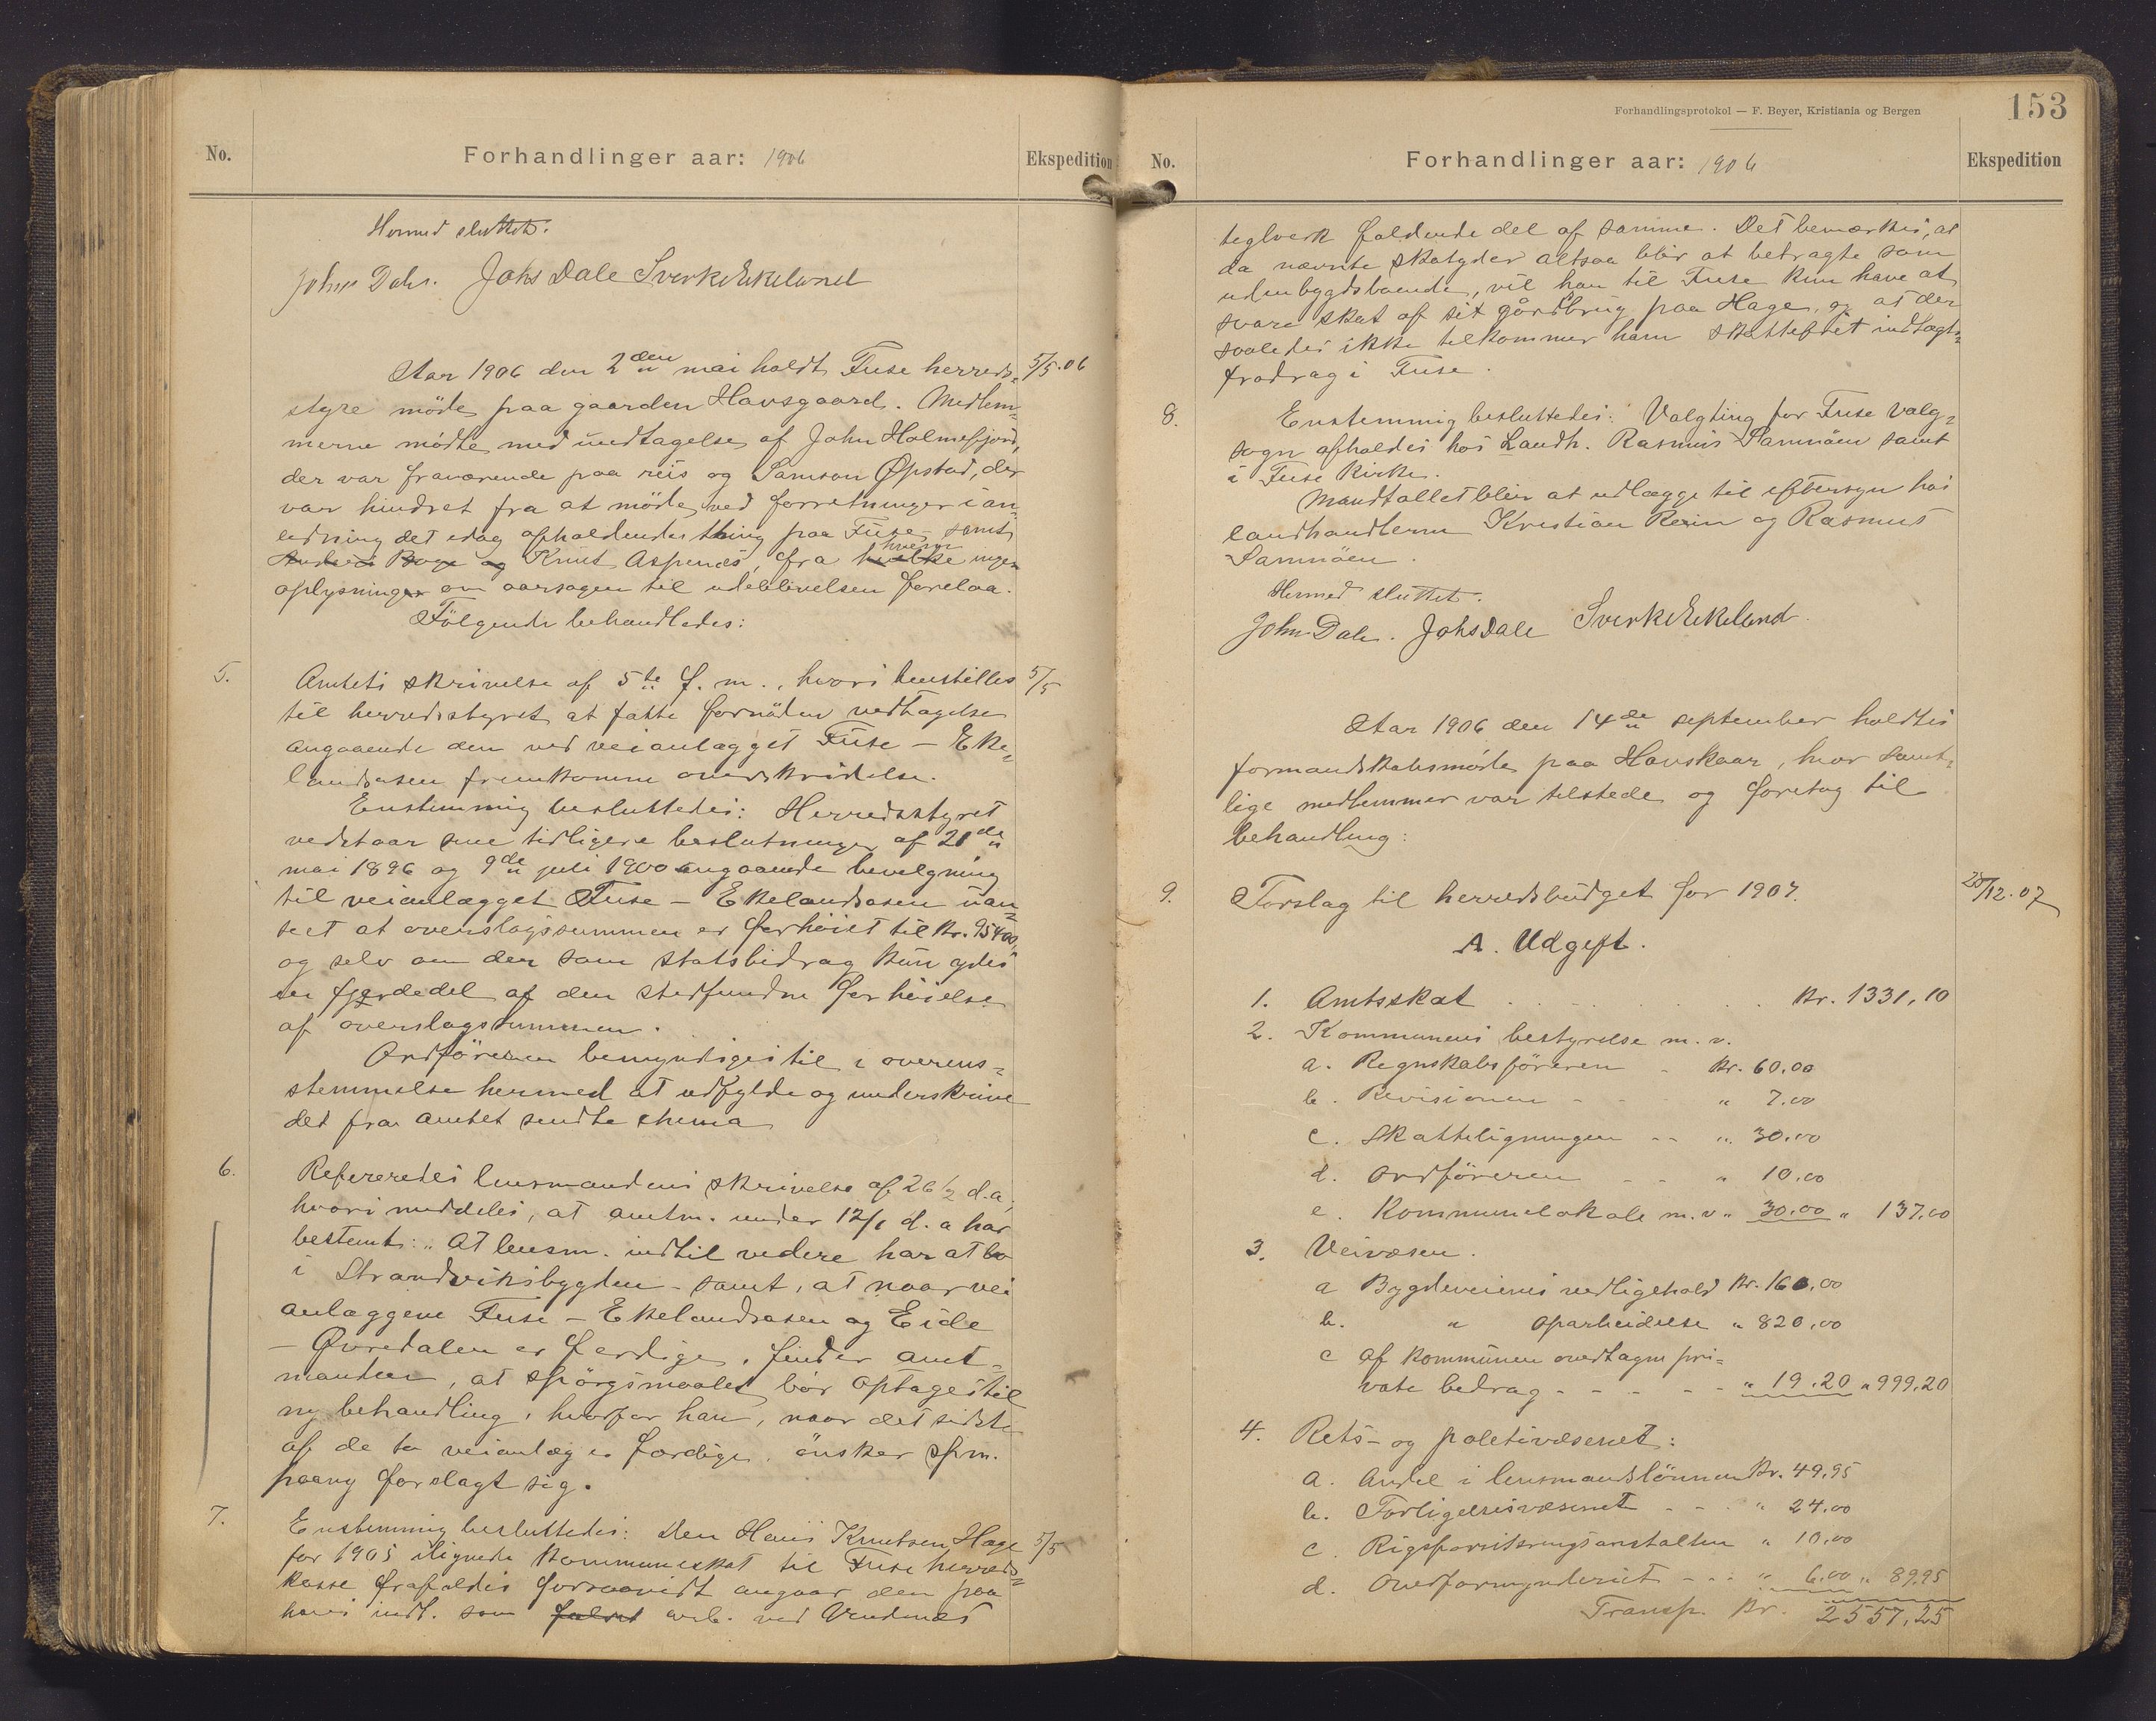 No. Forhandlinger aar: 1906 Ekspedition
Hermed sluttet.
Johs Dale Sverke Ekeland
Aar 1906 den 2den mai holdt Fuse herreds- 5/5.06
styre møde paa gaarden Havsgaard. Medlem-
merne mødte med undtagelse af John Holmefjord,
der var fraværende paa reis og Samson Øpstad, der
var hindret fra at møde ved forretninger i an-
ledning det idag afholdendes thing paa Fuse samt
Knut Aspenes, fra hvem ingen
oplysninger om aarsagen til udeblivelsen forelaa.
Følgende behandledes:
5. Amtets skrivelse af 5te f. m., hvori henstilles 5/5
til herredsstyret at fatte fornøden vedtagelse
angaaende den ved veianlægget Fuse – Eke-
landsosen fremkomne overskridelse.
Enstemmig besluttedes: Herredsstyret
vedstaar sine tidligere beslutninger af 21de
mai 1896 og 9de juli 1900 angaaende bevilgning
til veianlægget Fuse – Ekelandsosen uan-
seet at overslagssummen er forhøiet til kr. 95400,
og selv om der som statsbidrag kun ydes
en fjerdedel af den stedfundne forhøielse
af overslagssummen.
Ordføreren bemyndiges til i overens-
stemmelse hermed at udfylde og underskrive
det fra amtet sendte skema
6. Refereredes lensmandens skrivelse af 26/2 d.a,
hvori meddeles, at amtm. under 12/1 d. a har
bestemt: "At lensm. indtil videre har at bo
i Strandviksbygden – samt, at naar vei
anlæggene Fuse – Ekelandsosen og Eide
– Øvredalen er færdige, finder amt-
manden, at spørgsmaalet bør optages til
ny behandling, hvorfor han, naar det sidste
af de to veianlæg er færdige, ønsker spm.
paany forelagt sig.
7. Enstemmig besluttedes: Den Hans Knutsen Hage 5/5
for 1905 ilignede kommuneskat til Fuse herreds-
kasse frafaldes forsaavidt angaar den paa
hans indt. som arb. ved Vendenes
Forhandlingsprotokol — F. Beyer, Kristiania og Bergen 153
No. Forhandlinger aar: 1906 Ekspedition
teglverk faldende del af samme. Det bemærkes, at
da nævnte skatyder altsaa blir at betragte som
udenbygdsboende, vil han til Fuse kun have at
svare skat af sit gårdbrug paa Hage, og at der
saaledes ikke tilkommer ham skattefrit indtægts-
fradrag i Fuse.
8. Enstemmig besluttedes: Valgting for Fuse valg-
sogn afholdes hos Landh. Rasmus Samnøen samt
i Fuse kirke.
Mandtallet blir at udlægge til eftersyn hos
landhandlerne Kristian Rein og Rasmus
Samnøen.
Hermed sluttet.
John Dale. Johs Dale Sverke Ekeland.
Aar 1906 den 14de september holdtes
formandskabsmøde paa Havskaar, hvor samt-
lige medlemmer var tilstede og foretog til
behandling:
9. Forslag til herredsbudget for 1907. 28/12.07
A. Udgift.
1. Amtsskat . . . . . . . Kr. 1331,10
2. Kommunens bestyrelse m. v.
a. Regnskabsføreren - kr. 60.00
b. Revisionen - - " 7.00
c. Skatteligningen - - " 30.00
d. Ordføreren - - " 10.00
e. Kommunelokale m. v " 30.00 " 137,00
3. Veivæsen.
a Bygdeveienes vedligehold kr. 160,00
b. " oparbeidelse " 820,00
c Af kommunen overtagne pri-
vate bidrag - - - - - " 19.20 " 999,20
4. Rets- og politivæsenet:
a. Andel i lensmandslønnen kr. 49.95
b. Forligelsesvæsenet - - " 24.00
c. Rigsforsikringsanstalten " 10.00
d. Overformynderiet - - " 6.00 " 89,95
Transp. kr. 2557,25